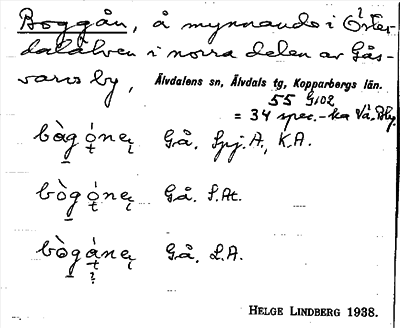 Boggån, å mynnande i Öster-
dalälven i norra delen av Gås-
varvs by, Älvdalens sn, Älvdals tg, Kopparbergs län.
55 G:02
= 34 spec.-ka Vä. Bbg.
Gå. Spj. A., K.A.
Gå. S.At.
Gå. L.A.
?
HELGE LINDBERG 1938.